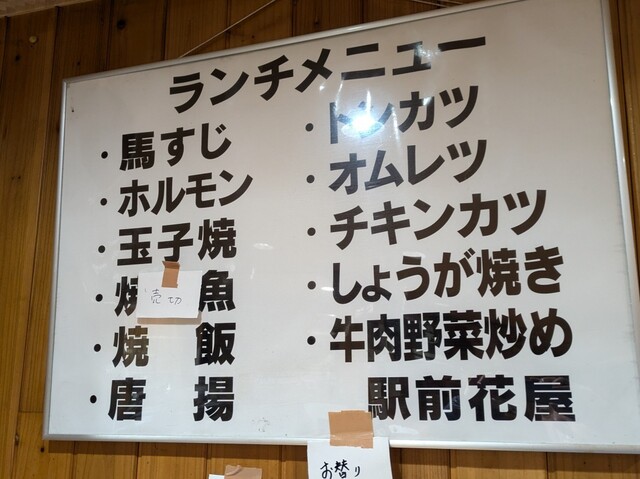 ランチメニュー
・馬すじ
・ホルモン
・玉子焼
・焼 魚
売切
・焼 飯
・唐 揚
・トンカツ
・オムレツ
・チキンカツ
・しょうが焼き
・牛肉野菜炒め
駅前花屋
お替り